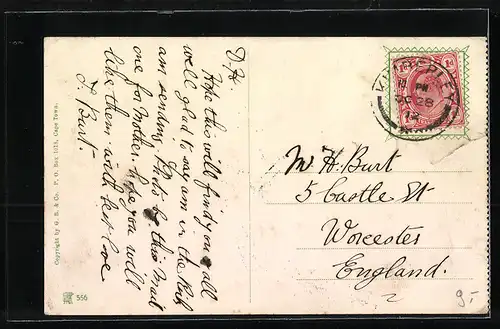 D. H.
Hope this will find you all
well glad to say am in the Pink
am sending Photo by this Mail
one for Mother. hope you will
like them. with best love
F. Burt.
Copyright by G. B. & Co. P. O. Box 1113, Cape Town.
556
1d 1d
KIMBERLEY
PM
DE 28
12
Mr H. Burt
5 Castle St
Worcester
England.
9.-